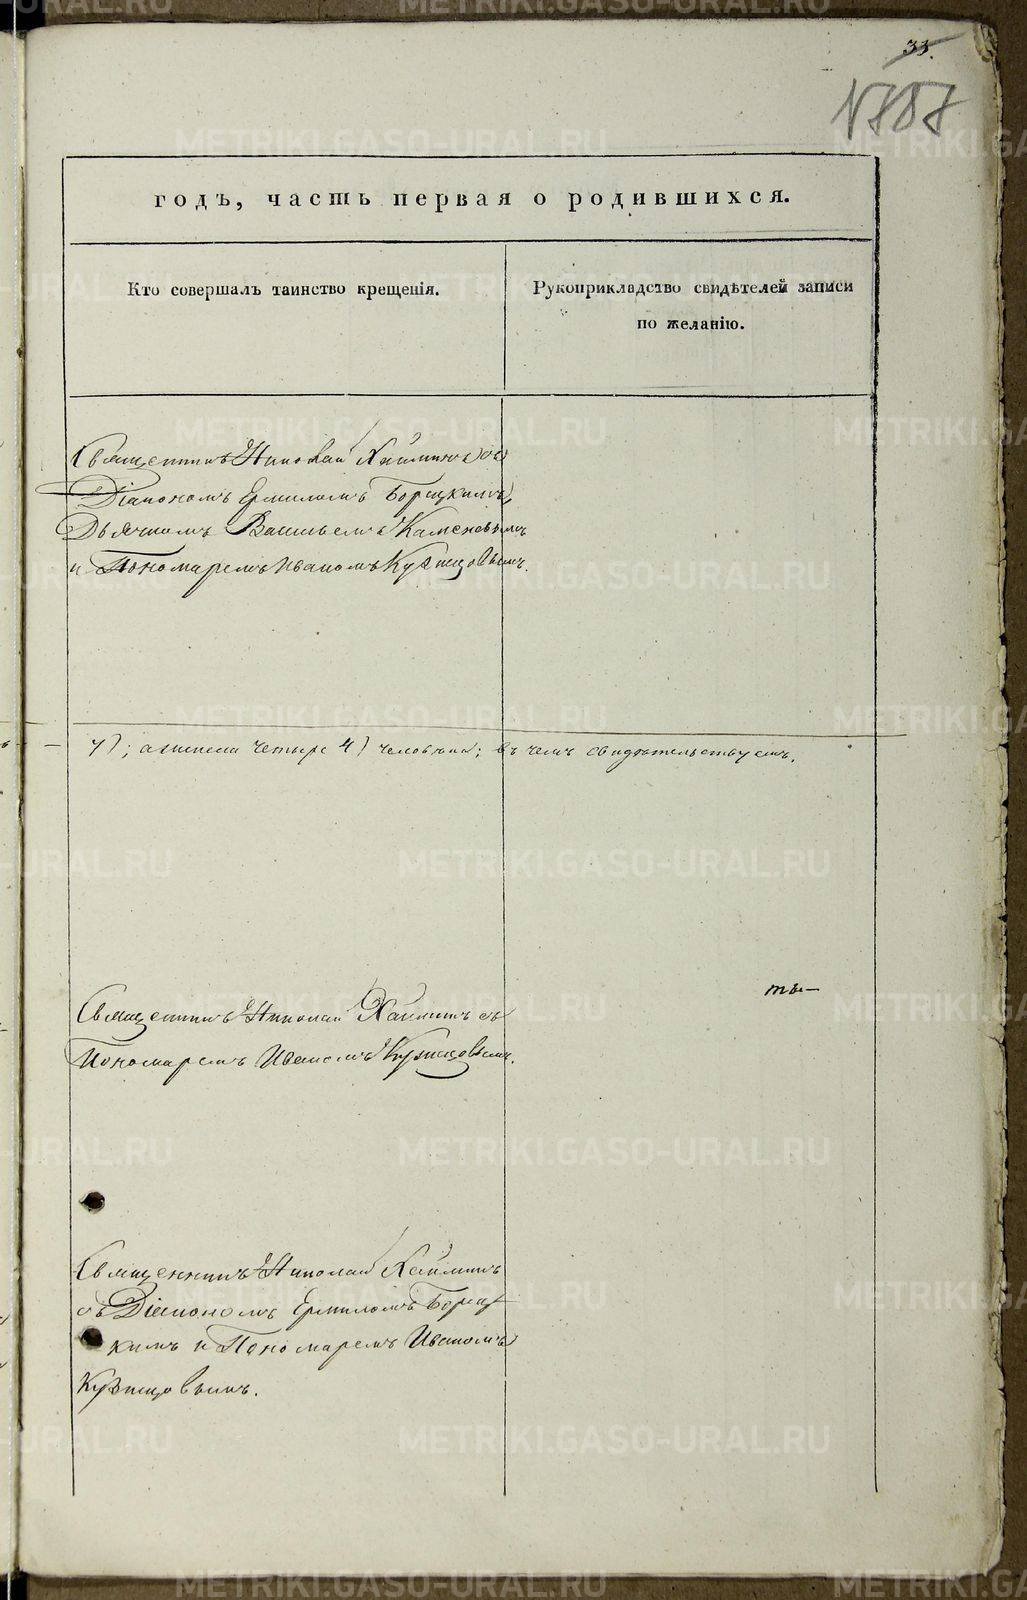 33.
N787
годъ, часть первая о родившихся.
Кто совершалъ таинство крещенія.
Рукоприкладство свидѣтелей записи
по желанію.
Священникъ Николай Хаймин съ
Діакономъ Ермиломъ Борецкимъ,
Дьячкомъ Васильемъ
и Пономаремъ Иваномъ Кузнецовымъ.
четыре 4) человѣка; въ чемъ свидѣтельствуемъ.
ты—
Священникъ Николай Хаймин съ
Пономаремъ Иваномъ Кузнецовымъ.
Священникъ Николай Хаймин
съ Діакономъ Ермиломъ Борец
кимъ и Пономаремъ Иваномъ
Кузнецовымъ.
METRIKI.GASO-URAL.RU